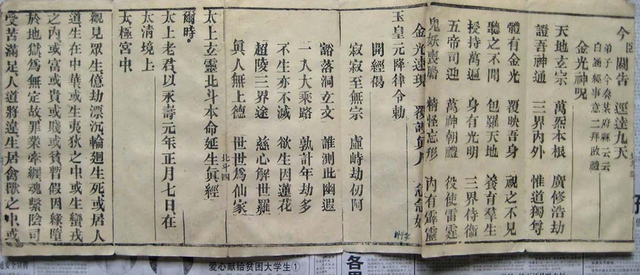 今臣關告 逕達九天
弟子今奏某府縣云云
金光神呪
天地玄宗 萬炁本根 廣修浩劫
證吾神通 三界內外 惟道獨尊
體有金光 覆映吾身 視之不見
聽之不聞 包羅天地 養育羣生
授持萬遍 身有光明 三界侍衛
五帝司迎 萬神朝禮 役使雷霆
鬼妖喪膽 精怪忘形 內有霹靂
金光速現 覆護真人 急急如
玉皇元降律令勅
開經偈
寂寂至無宗 虛峙劫仞阿
豁落洞玄文 誰測此幽遐
一入大乘路 孰計年劫多
不生亦不滅 欲生因蓮花
超陵三界途 慈心解世羅
眞人無上德 世世爲仙家
北斗 四
太上玄靈北斗本命延生眞經
爾時
太上老君以永壽元年正月七日在
太清境上
太極宮中
觀見眾生億劫漂沉輪迴生死或居人
道生在中華或生夷狄之中或生蠻戎
之內或富或貴或賤或貧暫假因緣墮
於地獄爲無定故罪業牽纏魂繫陰司
受苦滿足人道將違生居禽獸之中或
爱心献给贫困大学生①